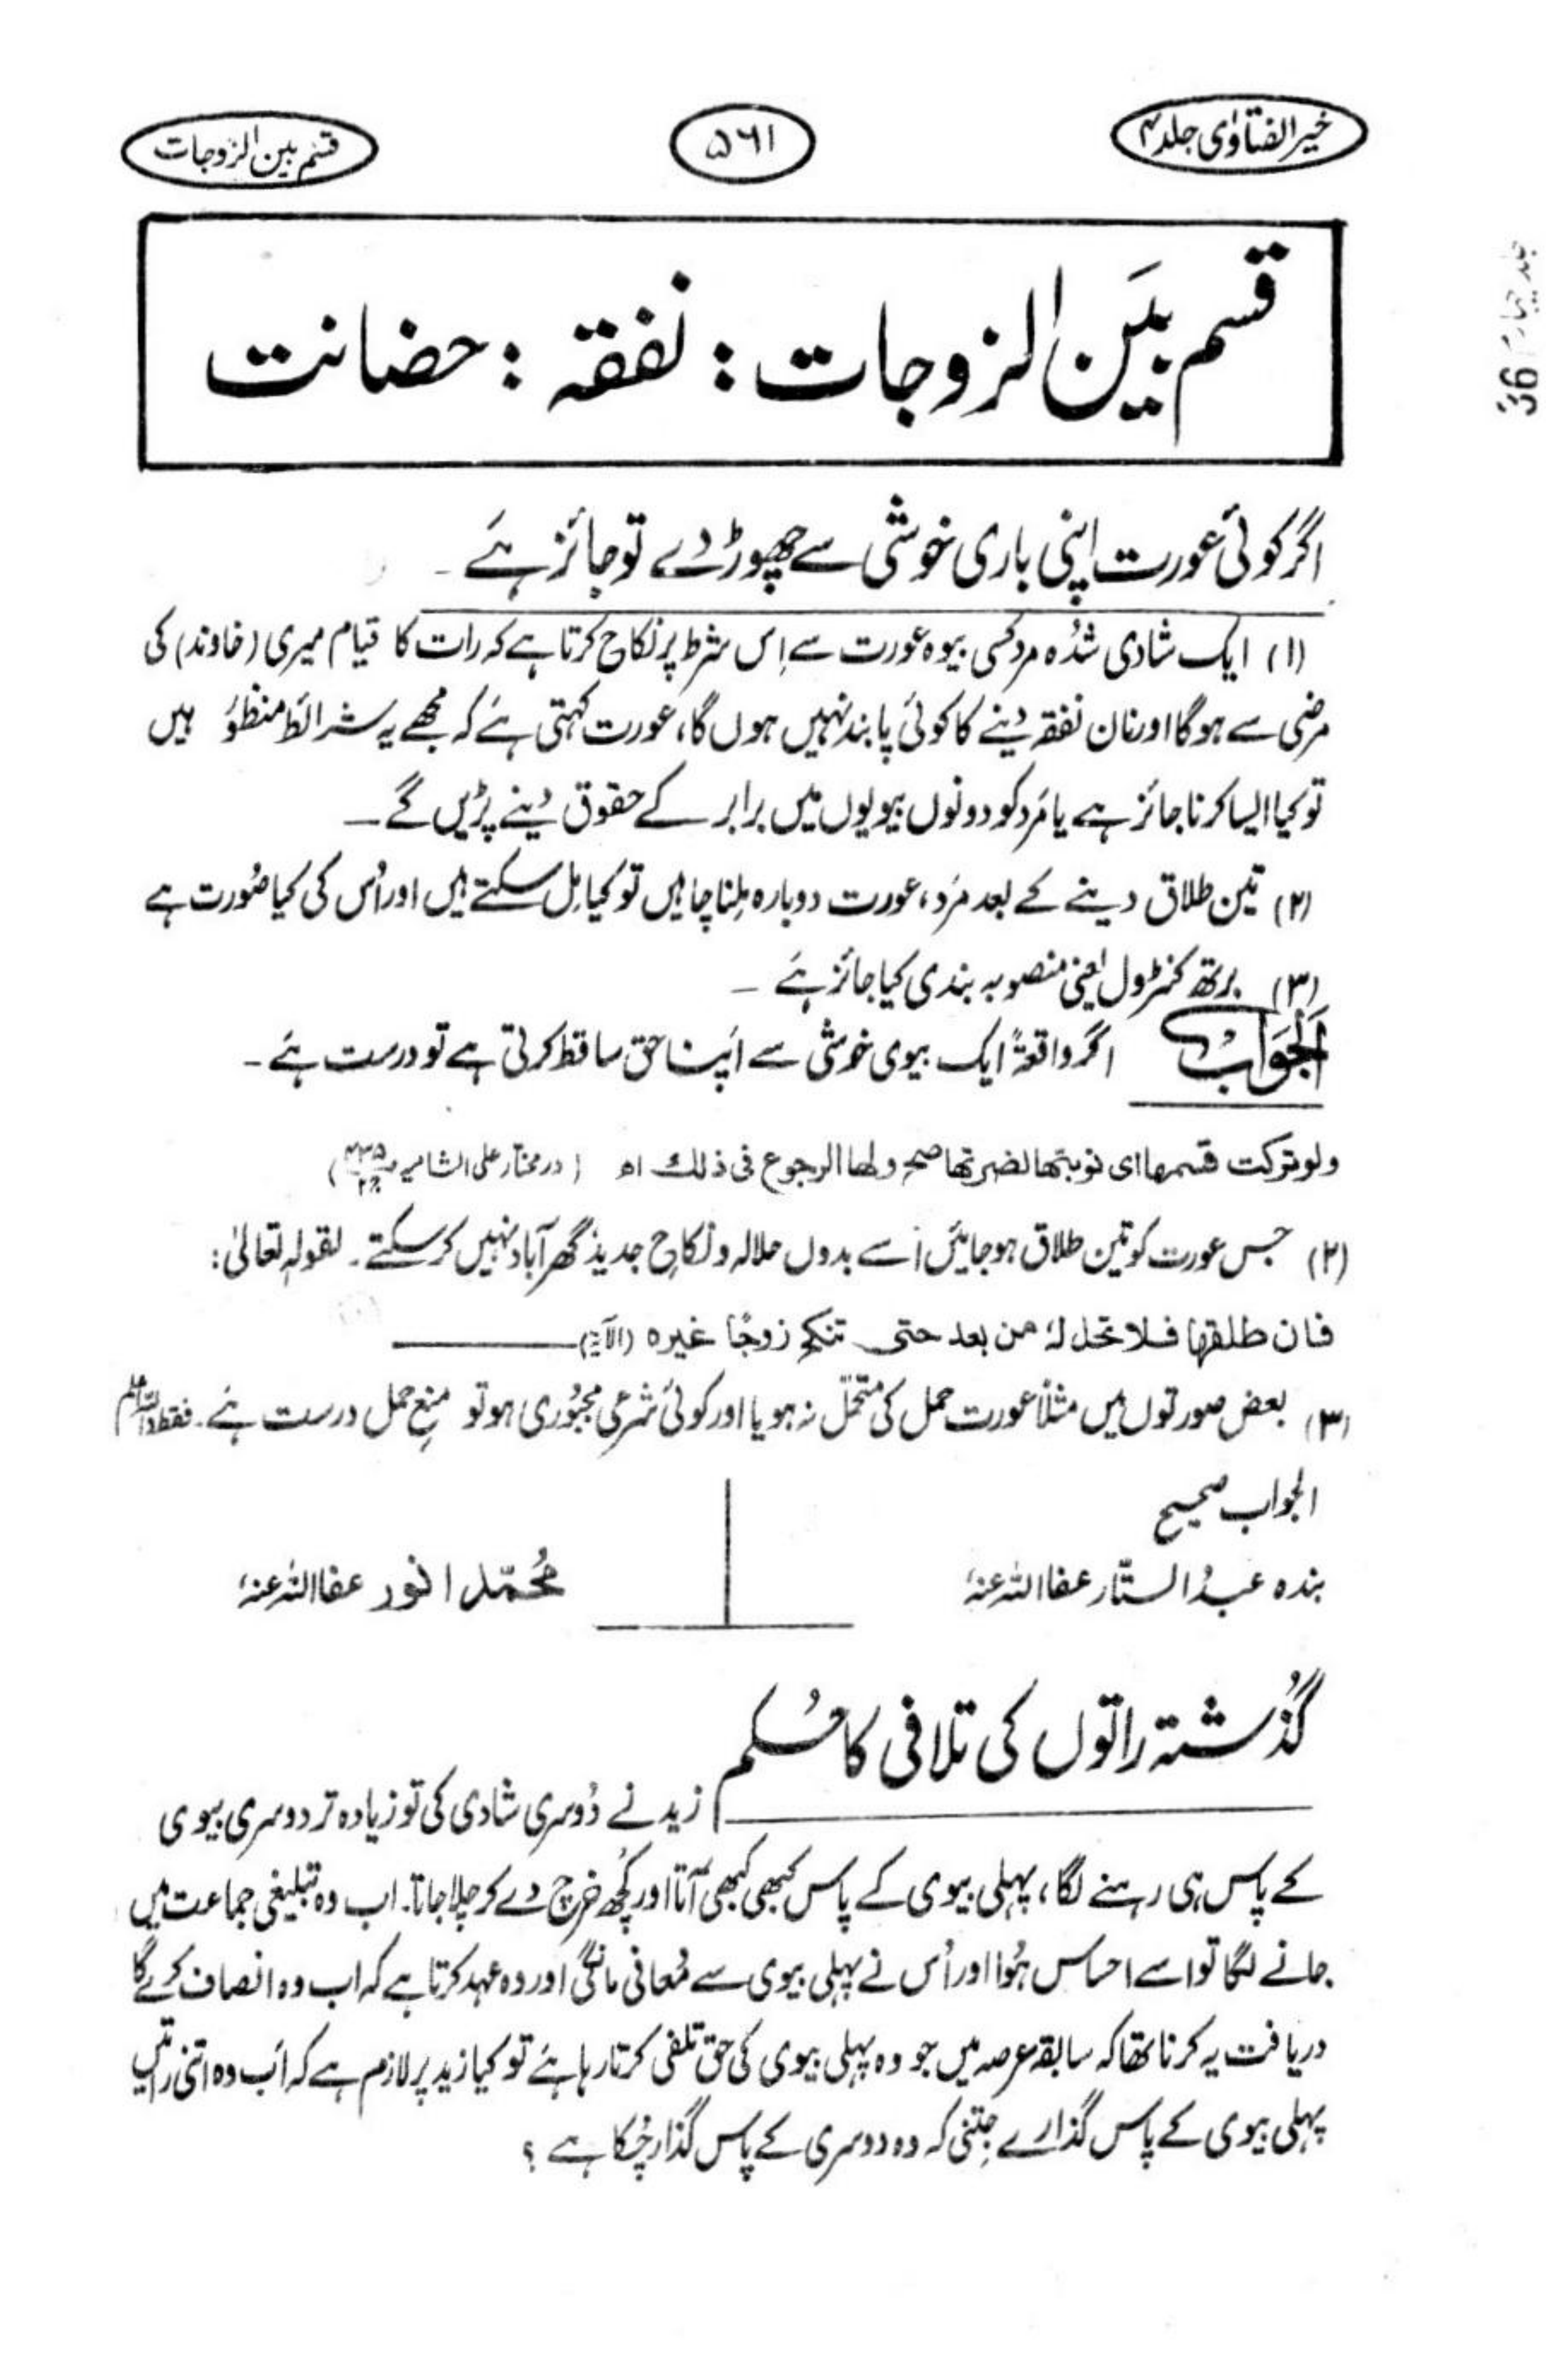 خیر الفتاویٰ جلد ۴
۵۶۱
قسم بین الزوجات
قسم بَین الزوجات : نفقہ : حضانت
اگر کوئی عورت اپنی باری خوشی سے چھوڑ دے تو جائز ہے ۔
(۱) ایک شادی شُدہ مرد کسی بیوہ عورت سے اِس شرط پر نکاح کرتا ہے کہ رات کا قیام میری (خاوند) کی
مرضی سے ہوگا اور نان نفقہ دینے کا کوئی پابند نہیں ہوں گا، عورت کہتی ہے کہ مجھے یہ شرائط منظور ہیں
تو کیا ایسا کرنا جائز ہے یا مَرد کو دونوں بیویوں میں برابر کے حقوق دینے پڑیں گے ۔
(۲) تین طلاق دینے کے بعد مَرد، عورت دوبارہ مِلنا چاہیں تو کیا مِل سکتے ہیں اور اُس کی کیا صُورت ہے
(۳) برتھ کنٹرول یعنی منصوبہ بندی کیا جائز ہے ۔
اَلجَوَابُ اگر واقعۃً ایک بیوی خوشی سے اپنا حق ساقط کرتی ہے تو درست ہے ۔
ولو ترکت قسمها ای نوبتها لضرتها صح ولها الرجوع فی ذلك اھ (در مختار علی الشامیہ
(۲) جس عورت کو تین طلاق ہو جائیں اُسے بدوں حلالہ و نکاحِ جدید گھر آباد نہیں کر سکتے ۔ لقولہٖ تعالیٰ :
فان طلقها فلا تحل لہٗ من بعد حتی تنکح زوجًا غیرہ (الآیۃ)
(۳) بعض صورتوں میں مثلاً عورت حمل کی متحمّل نہ ہو یا اور کوئی شرعی مجبُوری ہو تو منعِ حمل درست ہے ۔ فقط واللہ اعلم
الجواب صحیح
بندہ عبدُ الستّار عفا اللہ عنہٗ
مُحمّد انور عفا اللہ عنہٗ
گذُشتہ راتوں کی تلافی کا حُکم
زید نے دُوسری شادی کی تو زیادہ تر دوسری بیوی
کے پاس ہی رہنے لگا، پہلی بیوی کے پاس کبھی کبھی آتا اور کُچھ خرچ دے کر چلا جاتا۔ اب وہ تبلیغی جماعت میں
جانے لگا تو اسے احساس ہُوا اور اُس نے پہلی بیوی سے مُعافی مانگی اور وہ عہد کرتا ہے کہ اب وہ انصاف کرے گا
دریافت یہ کرنا تھا کہ سابقہ عرصہ میں جو وہ پہلی بیوی کی حق تلفی کرتا رہا ہے تو کیا زید پر لازم ہے کہ اَب وہ اتنی راتیں
پہلی بیوی کے پاس گذارے جِتنی کہ وہ دوسری کے پاس گذار چُکا ہے ؟
جلد چہارم 36